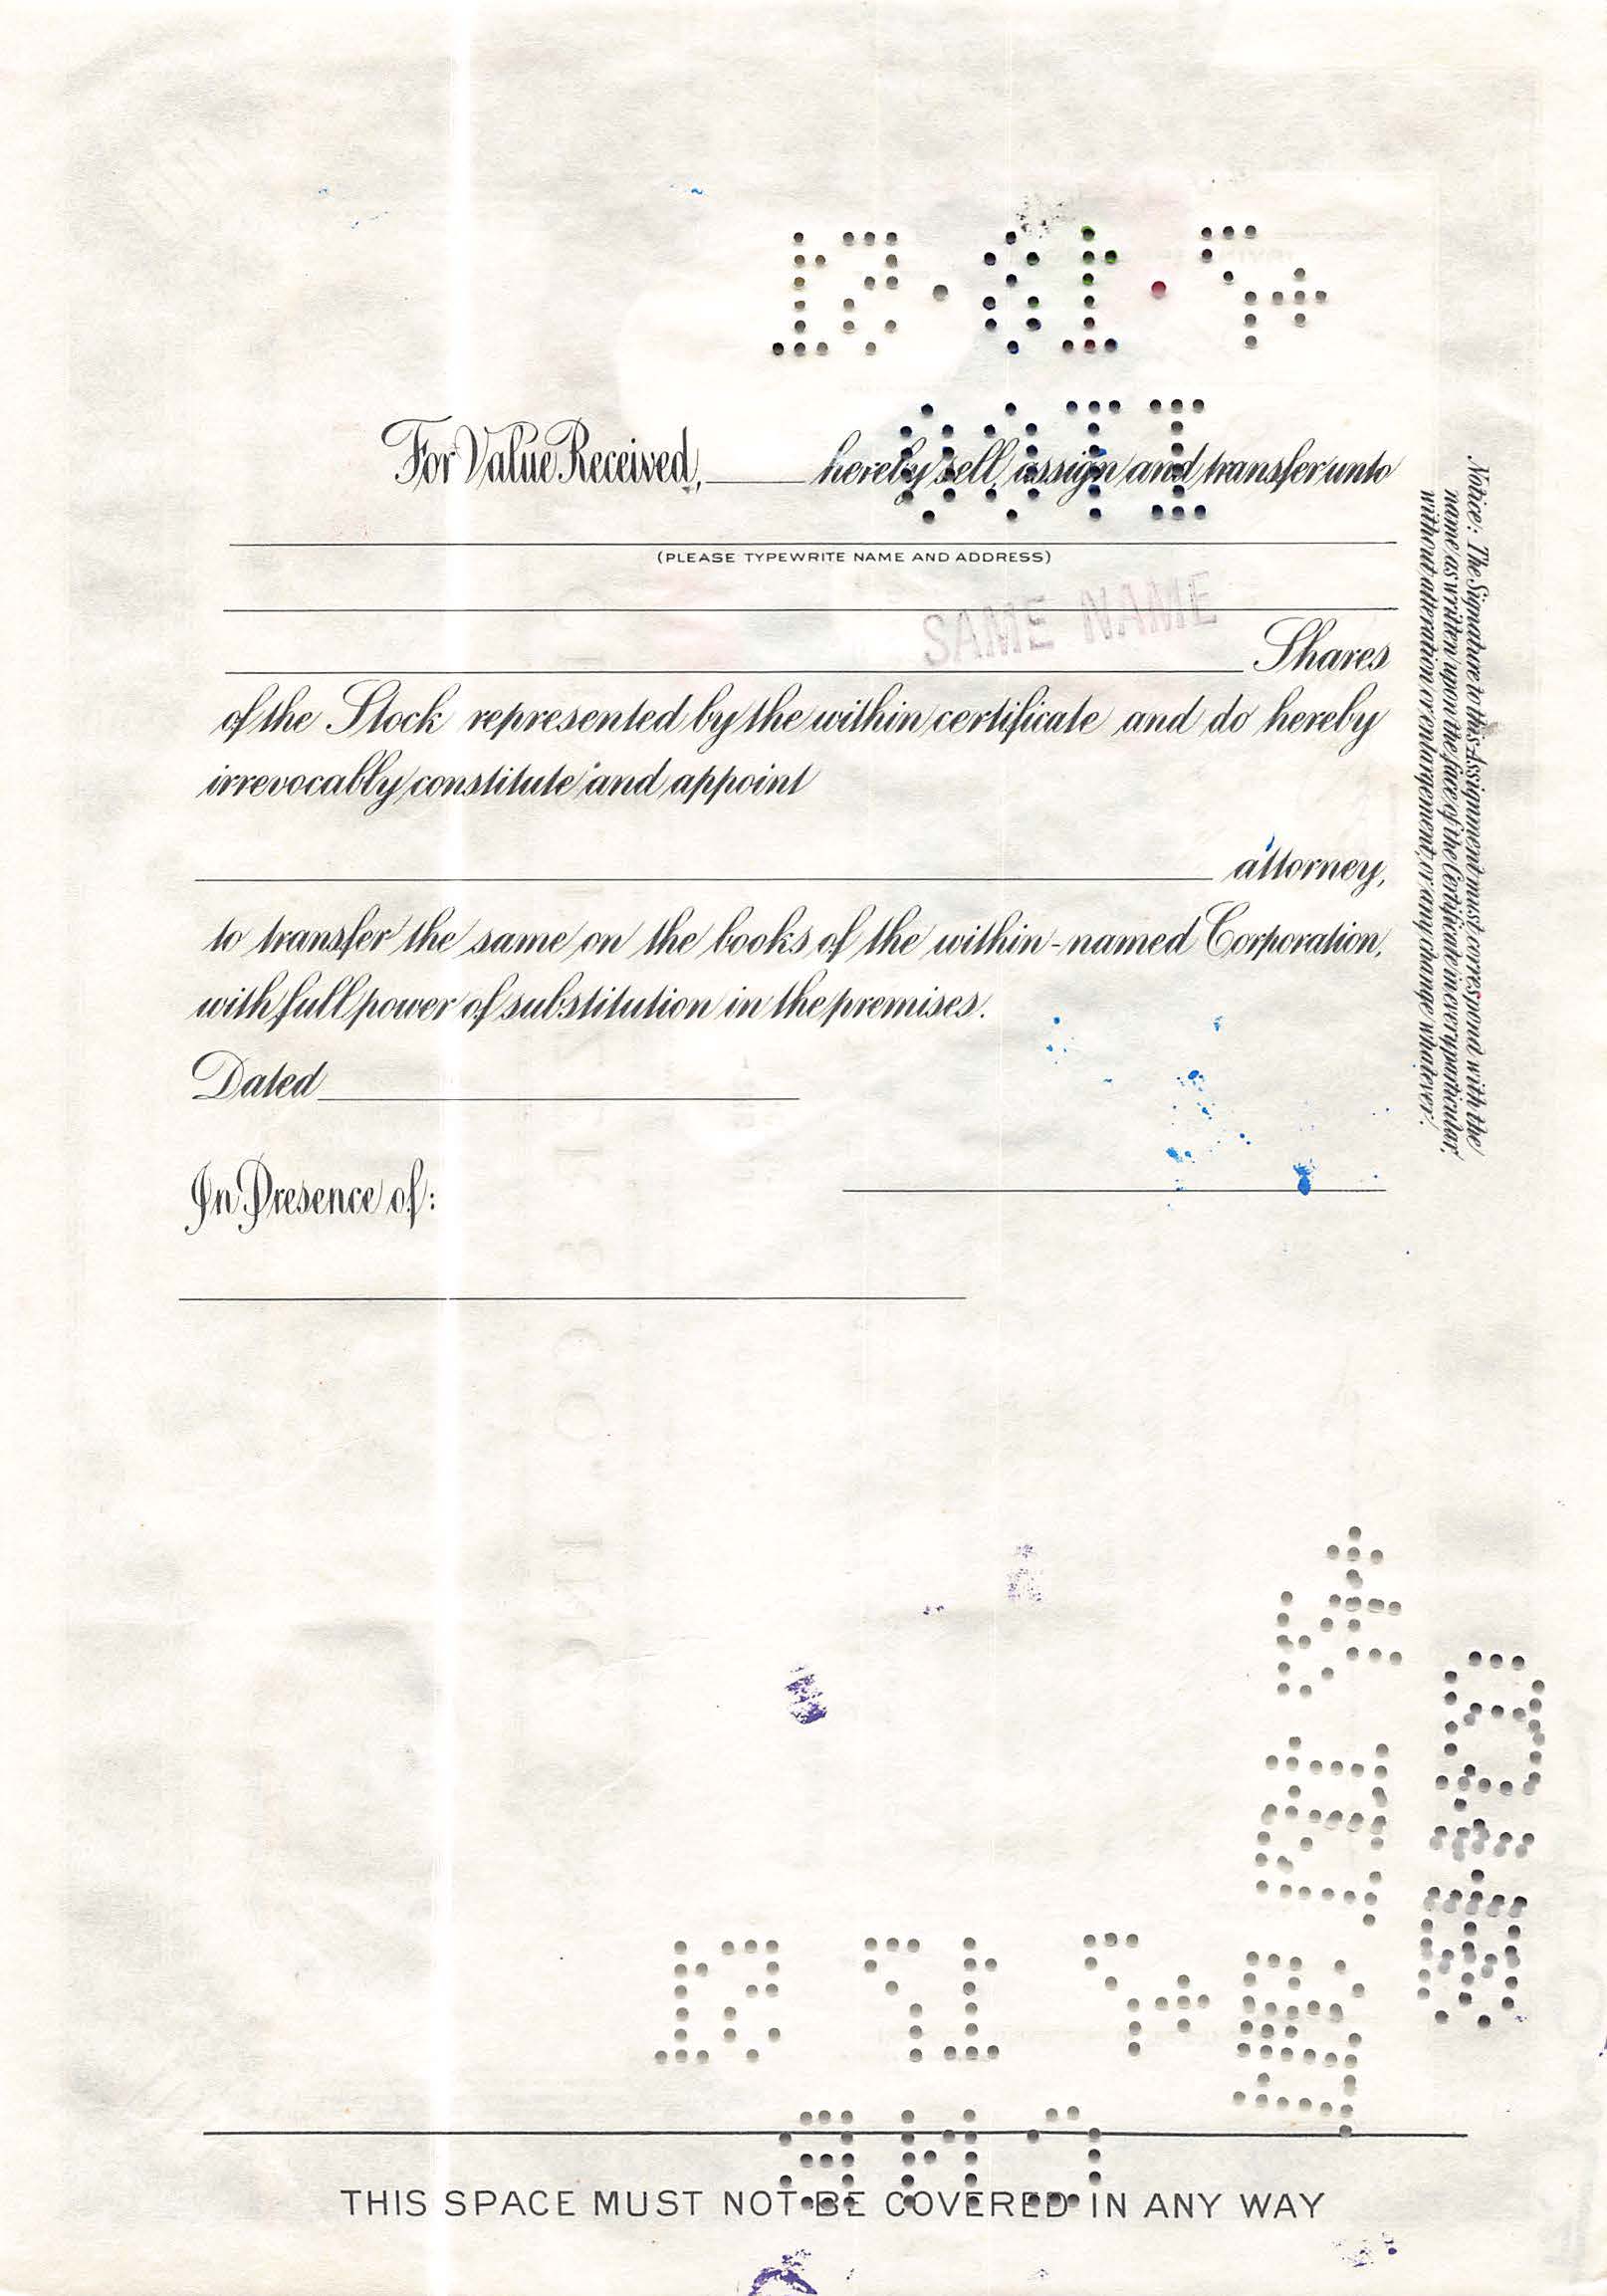 For Value Received, hereby sell, assign and transfer unto
(PLEASE TYPEWRITE NAME AND ADDRESS)
SAME NAME
Shares
of the Stock represented by the within certificate and do hereby
irrevocably constitute and appoint
attorney,
to transfer the same on the books of the within-named Corporation,
with full power of substitution in the premises.
Dated
In Presence of:
Notice: The Signature to this Assignment must correspond with the
name as written upon the face of the Certificate in every particular,
without alteration or enlargement, or any change whatever.
THIS SPACE MUST NOT BE COVERED IN ANY WAY